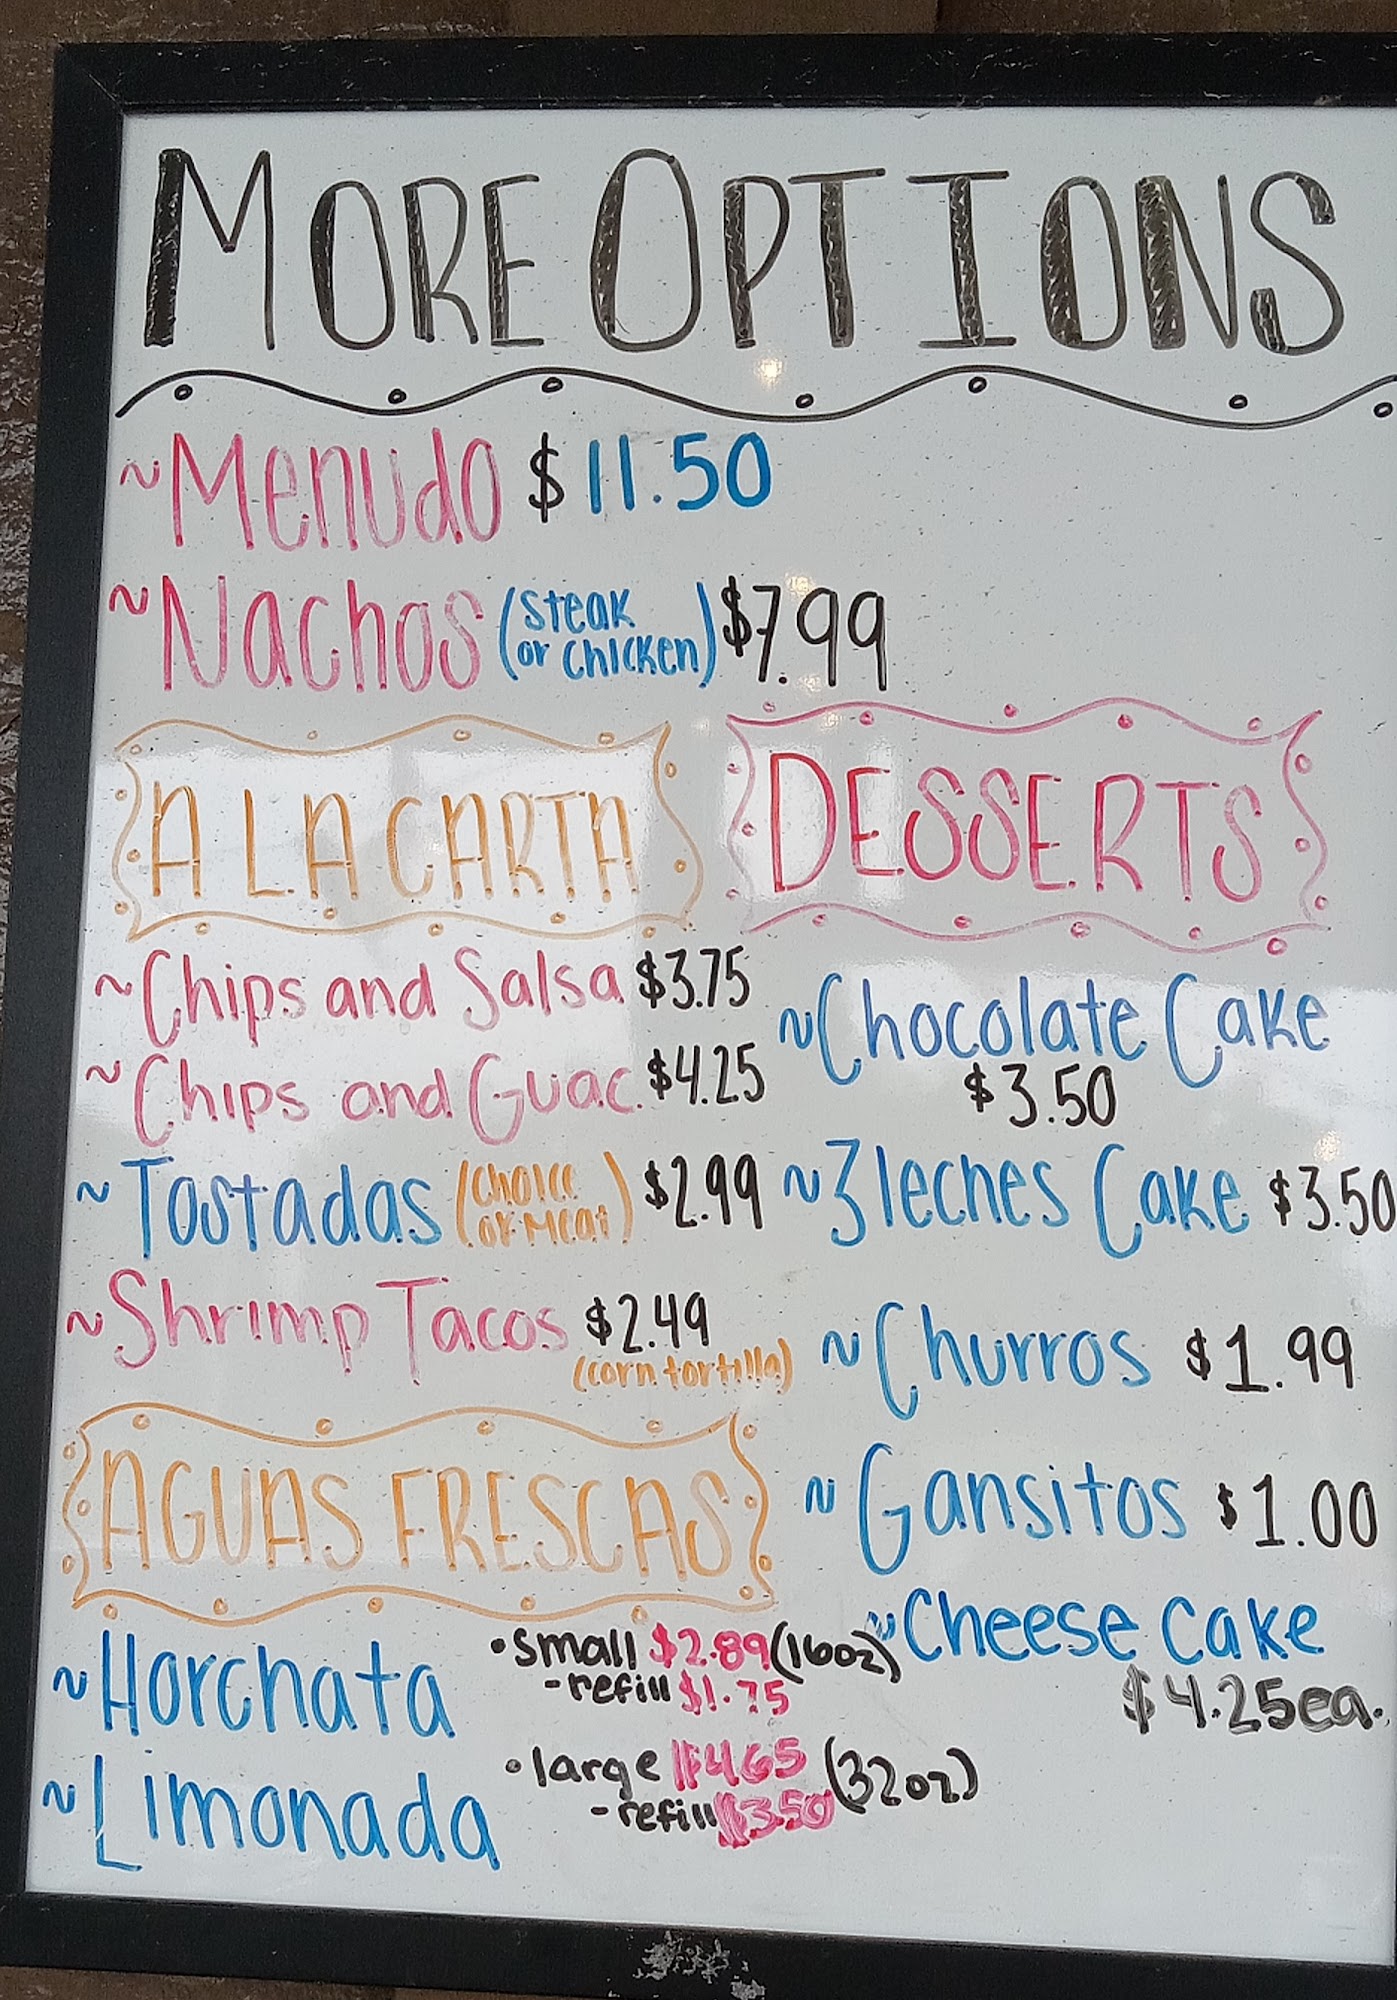 MORE OPTIONS
~Menudo $11.50
~Nachos (steak or chicken) $7.99
A LA CARTA
~Chips and Salsa $3.75
~Chips and Guac. $4.25
~Tostadas (choice of meat) $2.99
~Shrimp Tacos $2.49
(corn tortilla)
DESSERTS
~Chocolate Cake
$3.50
~3 leches Cake $3.50
~Churros $1.99
~Gansitos $1.00
~Cheese Cake
$4.25ea.
AGUAS FRESCAS
~Horchata
~Limonada
•small $2.89 (16oz)
-refill $1.75
•large $4.65 (32oz)
-refill $3.50